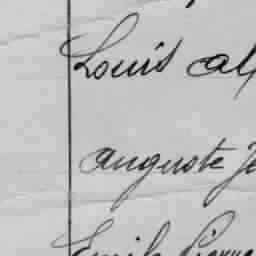 Louis al
auguste Je
Emile Pierre